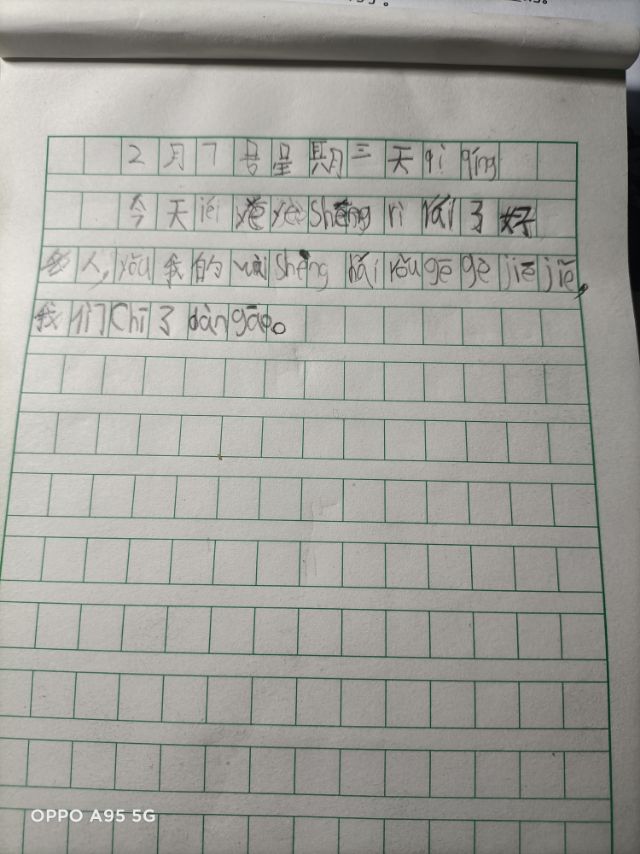 2月7号星期三天qì qíng
今天iéi yé yeè shēng rì lái了好
多人,yǒu我的wài shēng hái yǒu gē gè jiě jiě,
我们Chī了dàn gāo。
OPPO A95 5G